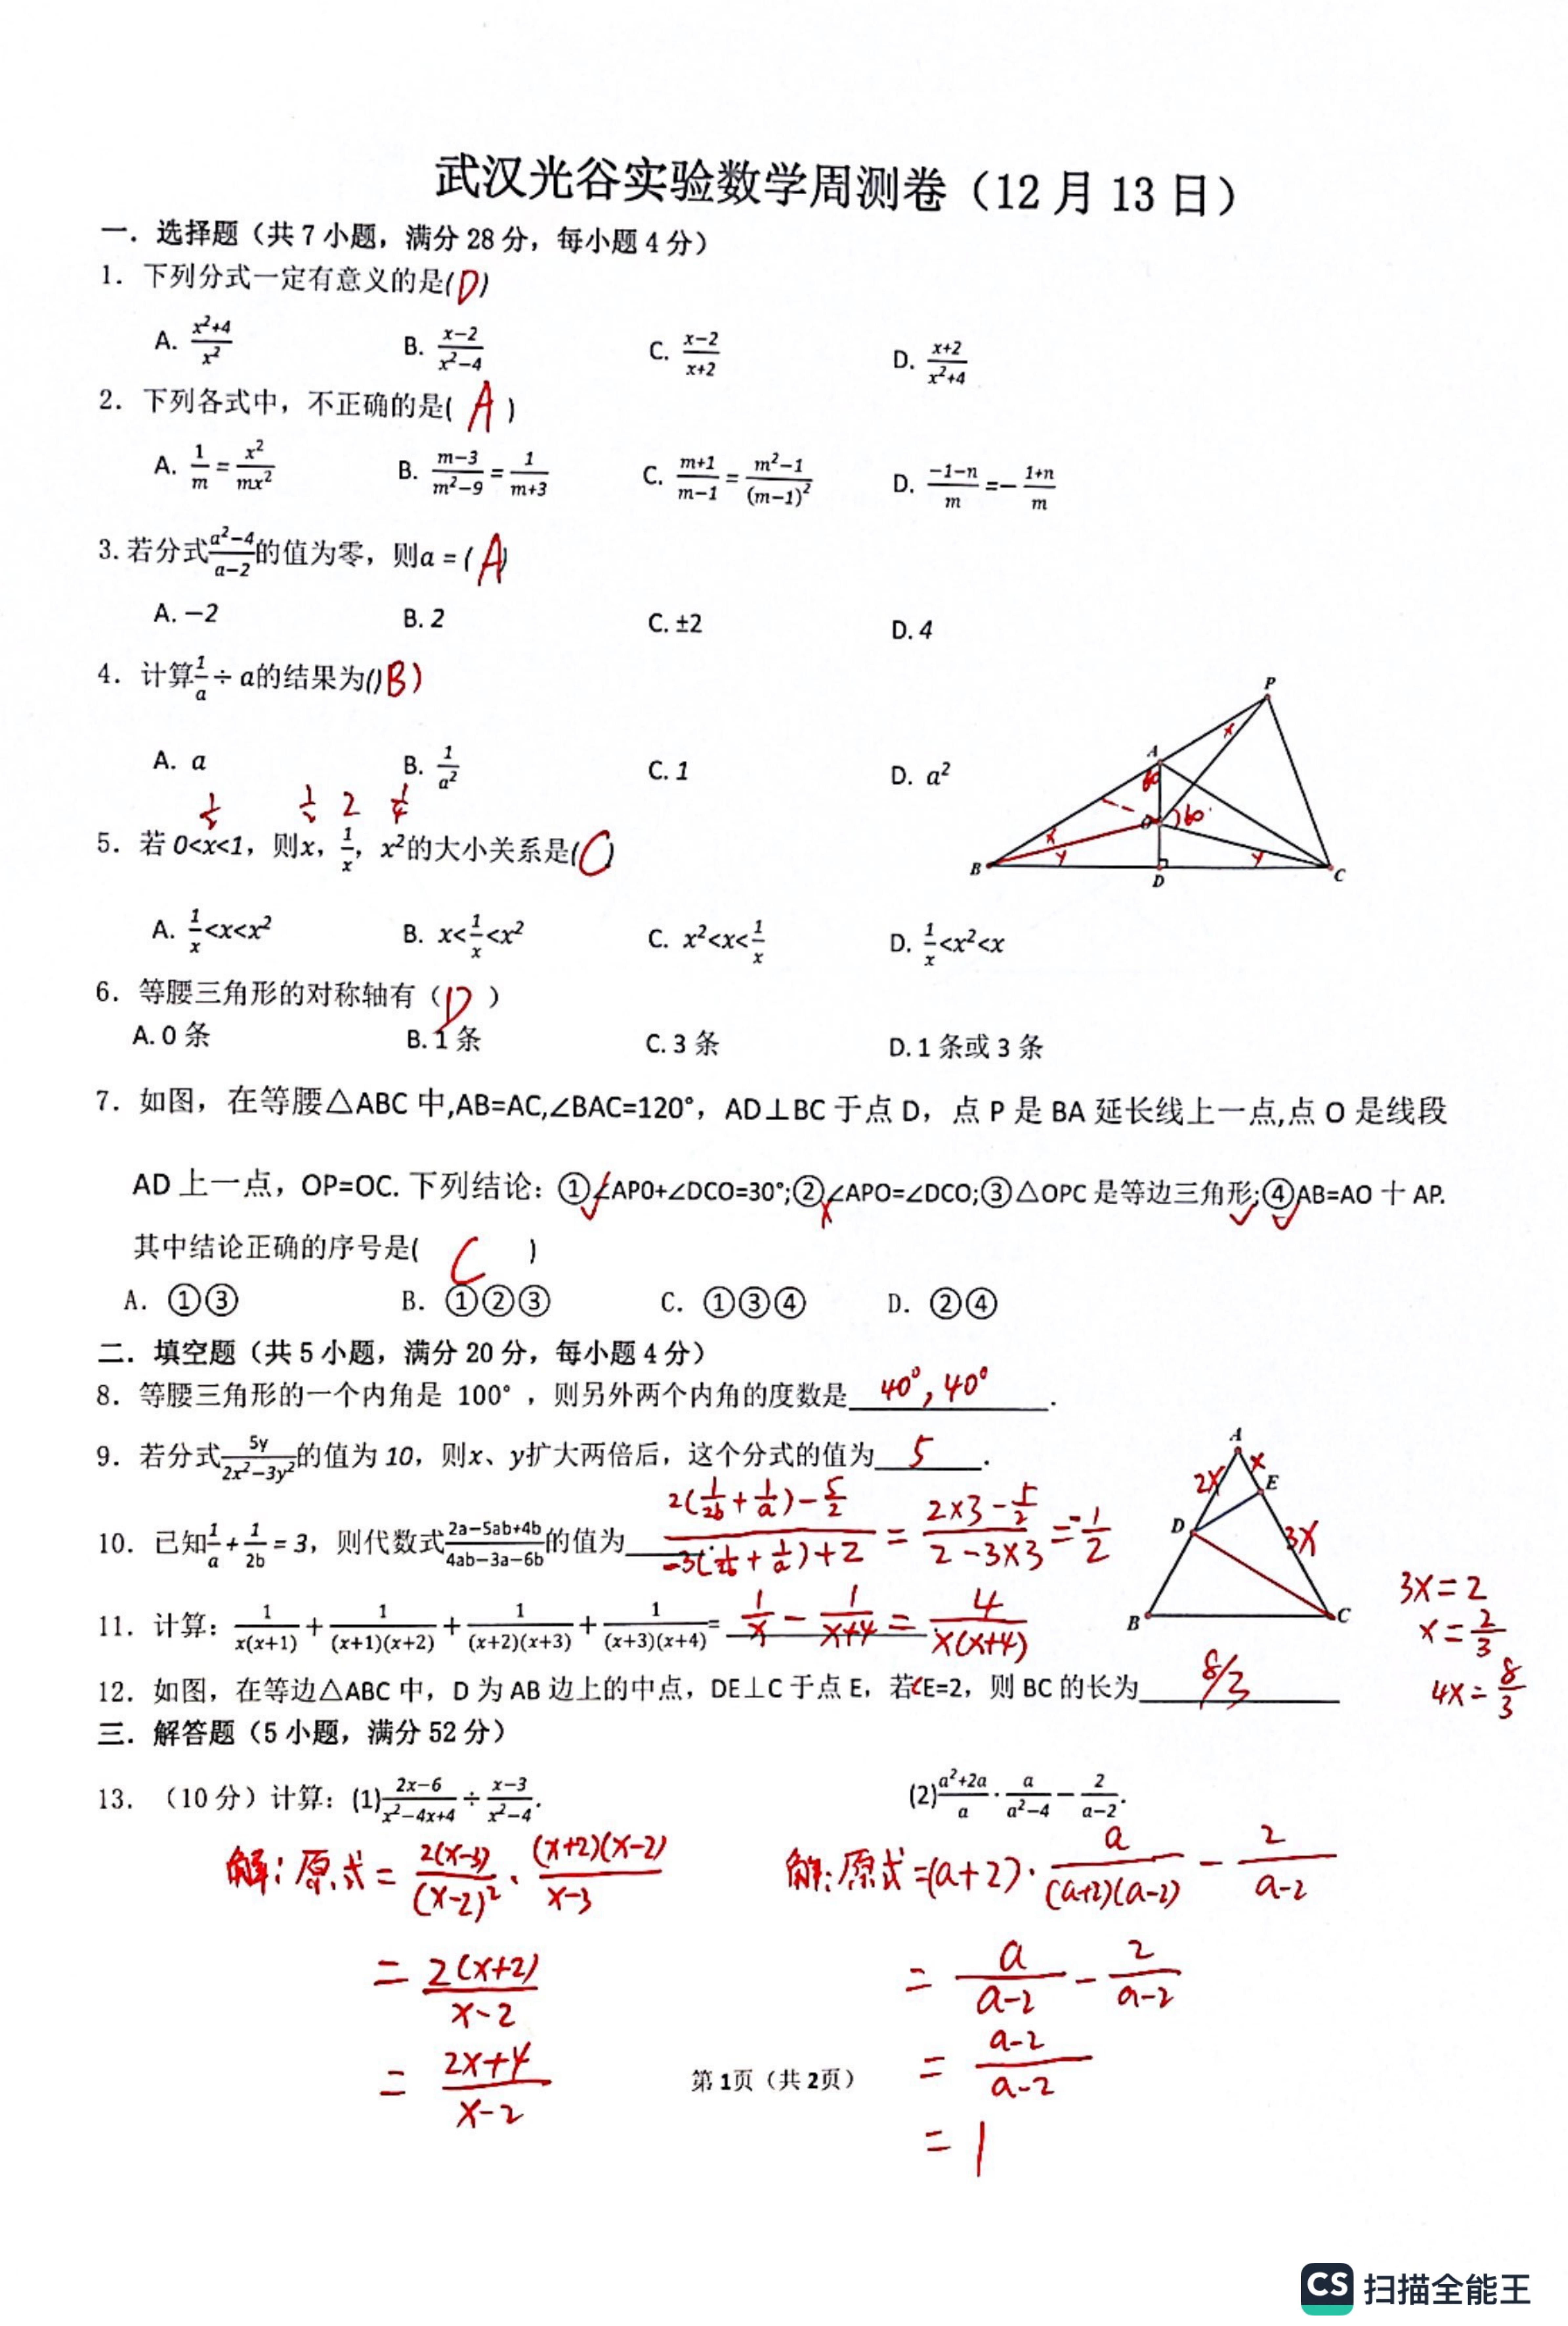 武汉光谷实验数学周测卷（12月13日）
一．选择题（共7小题，满分28分，每小题4分）
1．下列分式一定有意义的是(D)
A. \frac{x²+4}{x²} B. \frac{x−2}{x²−4} C. \frac{x−2}{x+2} D. \frac{x+2}{x²+4}
2．下列各式中，不正确的是( A )
A. \frac{1}{m}=\frac{x²}{mx²} B. \frac{m−3}{m²−9}=\frac{1}{m+3} C. \frac{m+1}{m−1}=\frac{m²−1}{(m−1)²} D. \frac{−1−n}{m}=−\frac{1+n}{m}
3.若分式\frac{a²−4}{a−2}的值为零，则a = ( A)
A. −2 B. 2 C. ±2 D. 4
4．计算\frac{1}{a}÷ a的结果为()B)
A. a B. \frac{1}{a²} C. 1 D. a²
P
A
60
x
O
60°
x
y
y
B
D
C
½ ½ 2 ¼
5．若 0<x<1，则x，\frac{1}{x}，x²的大小关系是(C)
A. \frac{1}{x}<x<x² B. x<\frac{1}{x}<x² C. x²<x<\frac{1}{x} D. \frac{1}{x}<x²<x
6．等腰三角形的对称轴有（D ）
A. 0 条 B. 1 条 C. 3 条 D. 1 条或 3 条
7．如图，在等腰△ABC 中,AB=AC,∠BAC=120°，AD⊥BC 于点 D，点 P 是 BA 延长线上一点,点 O 是线段
AD 上一点，OP=OC. 下列结论：①∠APO+∠DCO=30°;②∠APO=∠DCO;③△OPC 是等边三角形;④AB=AO 十 AP.
√ x √ √
其中结论正确的序号是( C )
A．①③ B．①②③ C．①③④ D．②④
二．填空题（共5小题，满分20分，每小题4分）
8．等腰三角形的一个内角是 100° ，则另外两个内角的度数是 40°, 40° .
9．若分式\frac{5y}{2x²−3y²}的值为 10，则x、y扩大两倍后，这个分式的值为 5 .
10．已知\frac{1}{a}+\frac{1}{2b}= 3，则代数式\frac{2a−5ab+4b}{4ab−3a−6b}的值为 \frac{2(\frac{1}{2b}+\frac{1}{a})−\frac{5}{2}}{−3(\frac{1}{2b}+\frac{1}{a})+2} = \frac{2×3−\frac{5}{2}}{2−3×3} = −\frac{1}{2}
A
x
2x
E
D
3x
B
C
11．计算：\frac{1}{x(x+1)}+\frac{1}{(x+1)(x+2)}+\frac{1}{(x+2)(x+3)}+\frac{1}{(x+3)(x+4)}= \frac{1}{x}−\frac{1}{x+4}=\frac{4}{x(x+4)}.
3x=2
x=\frac{2}{3}
4x=\frac{8}{3}
12．如图，在等边△ABC 中，D 为 AB 边上的中点，DE⊥C 于点 E，若CE=2，则 BC 的长为 8/3
三．解答题（5小题，满分52分）
13．（10 分）计算：(1)\frac{2x−6}{x²−4x+4}÷\frac{x−3}{x²−4}. (2)\frac{a²+2a}{a}·\frac{a}{a²−4}−\frac{2}{a−2}.
解：原式=\frac{2(x−3)}{(x−2)²}·\frac{(x+2)(x−2)}{x−3} 解：原式=(a+2)·\frac{a}{(a+2)(a−2)}−\frac{2}{a−2}
=\frac{2(x+2)}{x−2} =\frac{a}{a−2}−\frac{2}{a−2}
=\frac{2x+4}{x−2} =\frac{a−2}{a−2}
第 1页（共 2页）
= 1
CS 扫描全能王